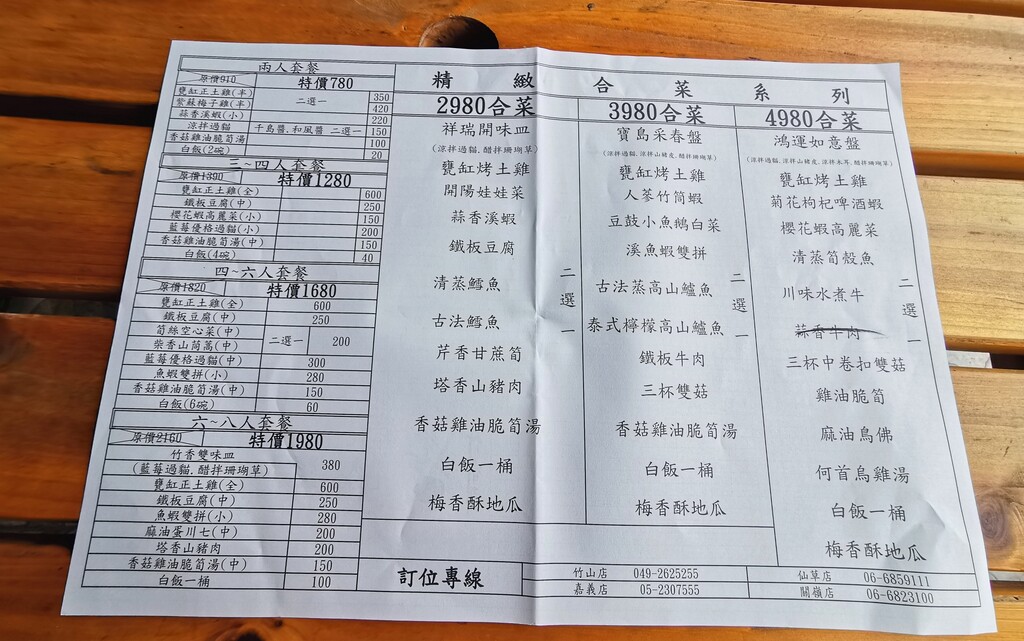 兩人套餐
原價910 特價780
甕缸正土雞(半) 二選一 350
紫蘇梅子雞(半) 420
蒜香溪蝦(小) 220
涼拌過貓 千島醬.和風醬 二選一 150
香菇雞油脆筍湯 100
白飯(2碗) 20
三~四人套餐
原價1390 特價1280
甕缸正土雞(全) 600
鐵板豆腐(中) 250
櫻花蝦高麗菜(小) 150
藍莓優格過貓(小) 200
香菇雞油脆筍湯(中) 150
白飯(4碗) 40
四~六人套餐
原價1820 特價1680
甕缸正土雞(全) 600
鐵板豆腐(中) 250
筍絲空心菜(中) 二選一 200
柴香山茼萵(中)
藍莓優格過貓(中) 300
魚蝦雙拼(小) 280
香菇雞油脆筍湯(中) 150
白飯(6碗) 60
六~八人套餐
原價2160 特價1980
竹香雙味皿 380
(藍莓過貓.醋拌珊瑚草)
甕缸正土雞(全) 600
鐵板豆腐(中) 250
魚蝦雙拼(小) 280
麻油蛋川七(中) 200
塔香山豬肉 200
香菇雞油脆筍湯(中) 150
白飯一桶 100
精緻合菜系列
2980合菜
祥瑞開味皿
(涼拌過貓.醋拌珊瑚草)
甕缸烤土雞
開陽娃娃菜
蒜香溪蝦
鐵板豆腐
清蒸鱈魚
二選一
古法鱈魚
芹香甘蔗筍
塔香山豬肉
香菇雞油脆筍湯
白飯一桶
梅香酥地瓜
3980合菜
寶島采春盤
(涼拌過貓.涼拌山豬皮.醋拌珊瑚草)
甕缸烤土雞
人蔘竹筒蝦
豆鼓小魚鵝白菜
溪魚蝦雙拼
古法蒸高山鱸魚
二選一
泰式檸檬高山鱸魚
鐵板牛肉
三杯雙菇
香菇雞油脆筍湯
白飯一桶
梅香酥地瓜
4980合菜
鴻運如意盤
(涼拌過貓.涼拌山豬皮.涼拌水耳.醋拌珊瑚草)
甕缸烤土雞
菊花枸杞啤酒蝦
櫻花蝦高麗菜
清蒸筍殼魚
川味水煮牛
二選一
蒜香牛肉
三杯中卷扣雙菇
雞油脆筍
麻油鳥佛
何首烏雞湯
白飯一桶
梅香酥地瓜
訂位專線
竹山店 049-2625255 仙草店 06-6859111
嘉義店 05-2307555 關嶺店 06-6823100